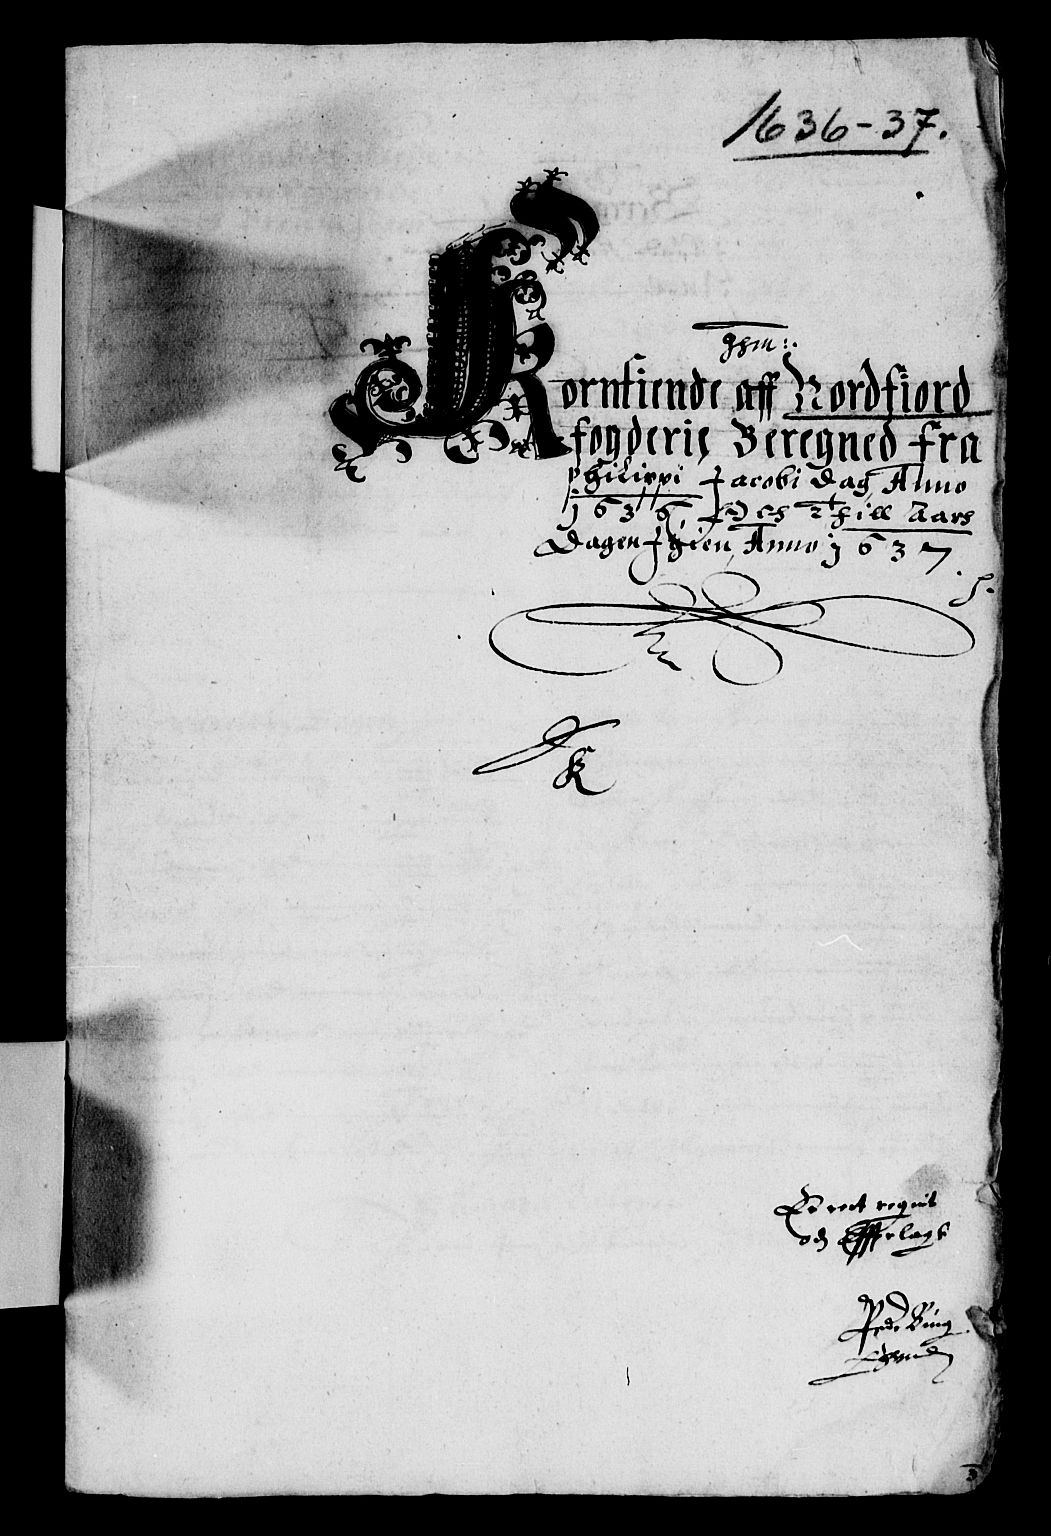 1636-37.
Korntiende aff Nordfiord
fougderie Beregned fra
Philippi Jacobi dag Anno
1636, Och Thill Aars
Dagen Igien Anno 1637.
K
Er rett regnit
och Efferlagt
Peder